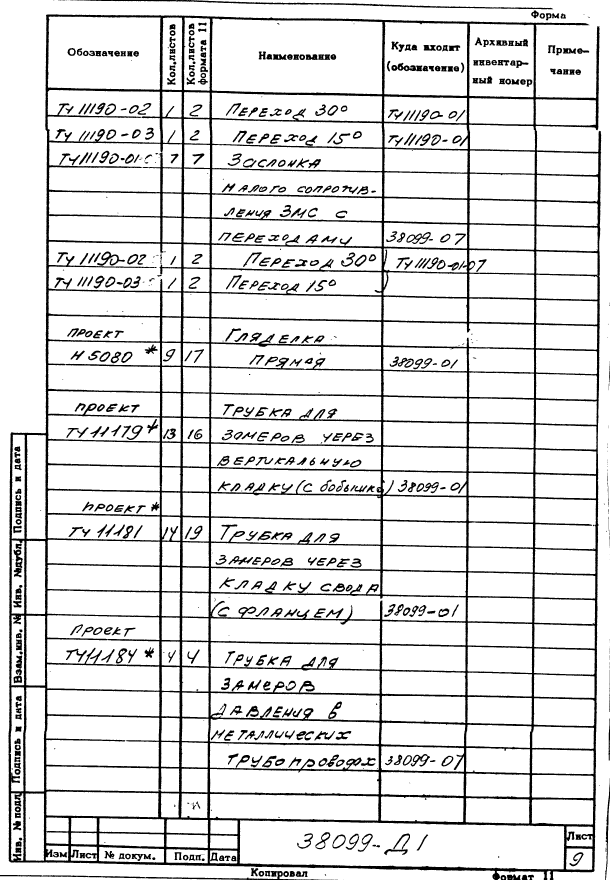 Форма
Обозначение Кол.листов Кол.листов формата 11 Наименование Куда входит (обозначение) Архивный инвентар-ный номер Приме-чание
ТЧ 11190-02 1 2 Переход 30° ТЧ11190-01
ТЧ 11190-03 1 2 Переход 15° ТЧ11190-01
ТЧ11190-01 7 7 Заслонка
малого сопротив-
ления ЗМС с
переходами 38099-07
ТЧ 11190-02 1 2 Переход 30° ) ТЧ11190-01-07
ТЧ 11190-03 1 2 Переход 15° )
проект Гляделка
Н 5080 * 9 17 прямая 38099-01
проект Трубка для
ТЧ 11179 * 13 16 замеров через
вертикальную
кладку (с бобышкой) 38099-01
проект *
ТЧ 11181 14 19 Трубка для
замеров через
кладку свода
(с фланцем) 38099-01
проект
ТЧ11184 * 4 4 Трубка для
замеров
давления в
металлических
трубопроводах 38099-07
Инв. № подл. Подпись и дата Взам.инв. № Инв. №дубл. Подпись и дата
38099-Д1
Лист
9
Изм Лист № докум. Подп. Дата
Копировал Формат 11